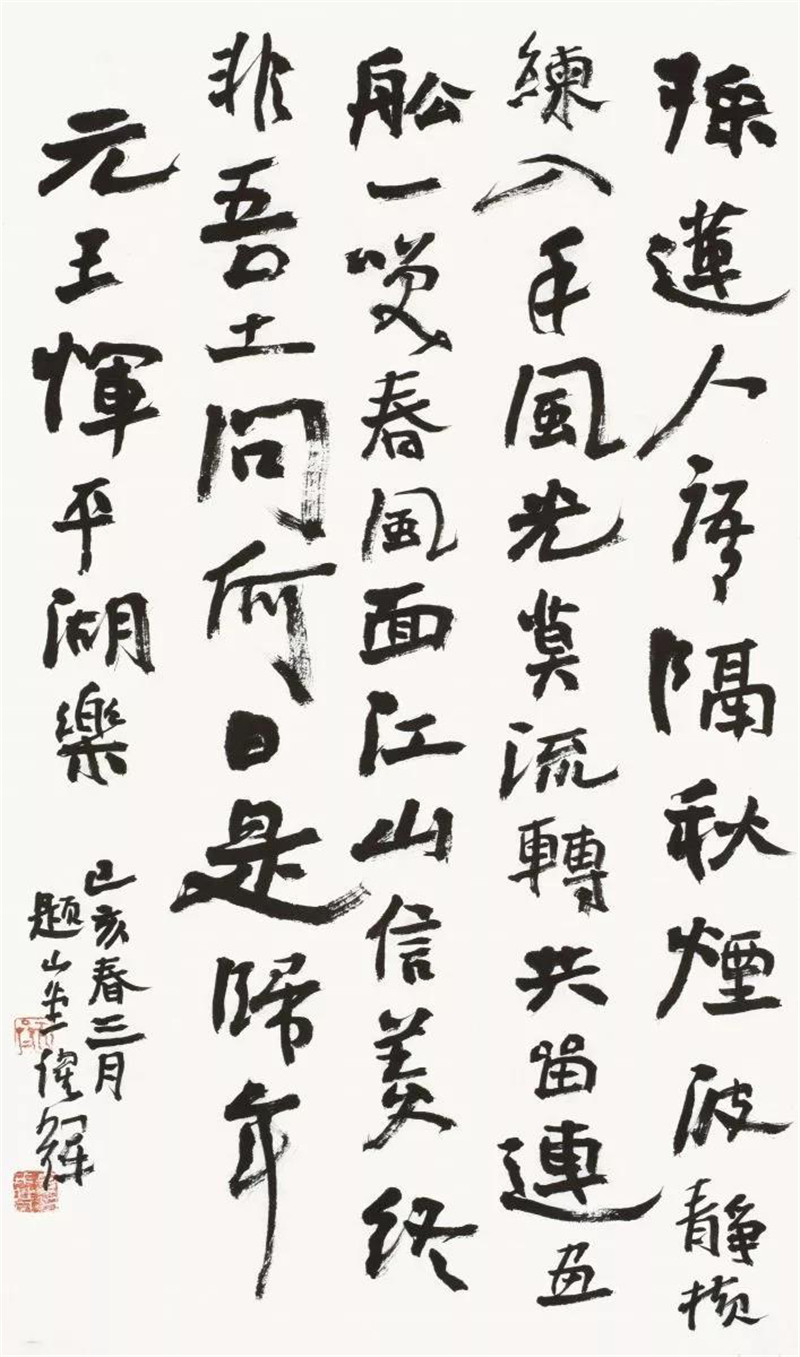 採蓮人語隔秋煙波靜橫
練入手風光莫流轉共留連畫
舩一咲春風面江山信美終
非吾土問何日是歸年
元王惲平湖樂
己亥春三月
題山